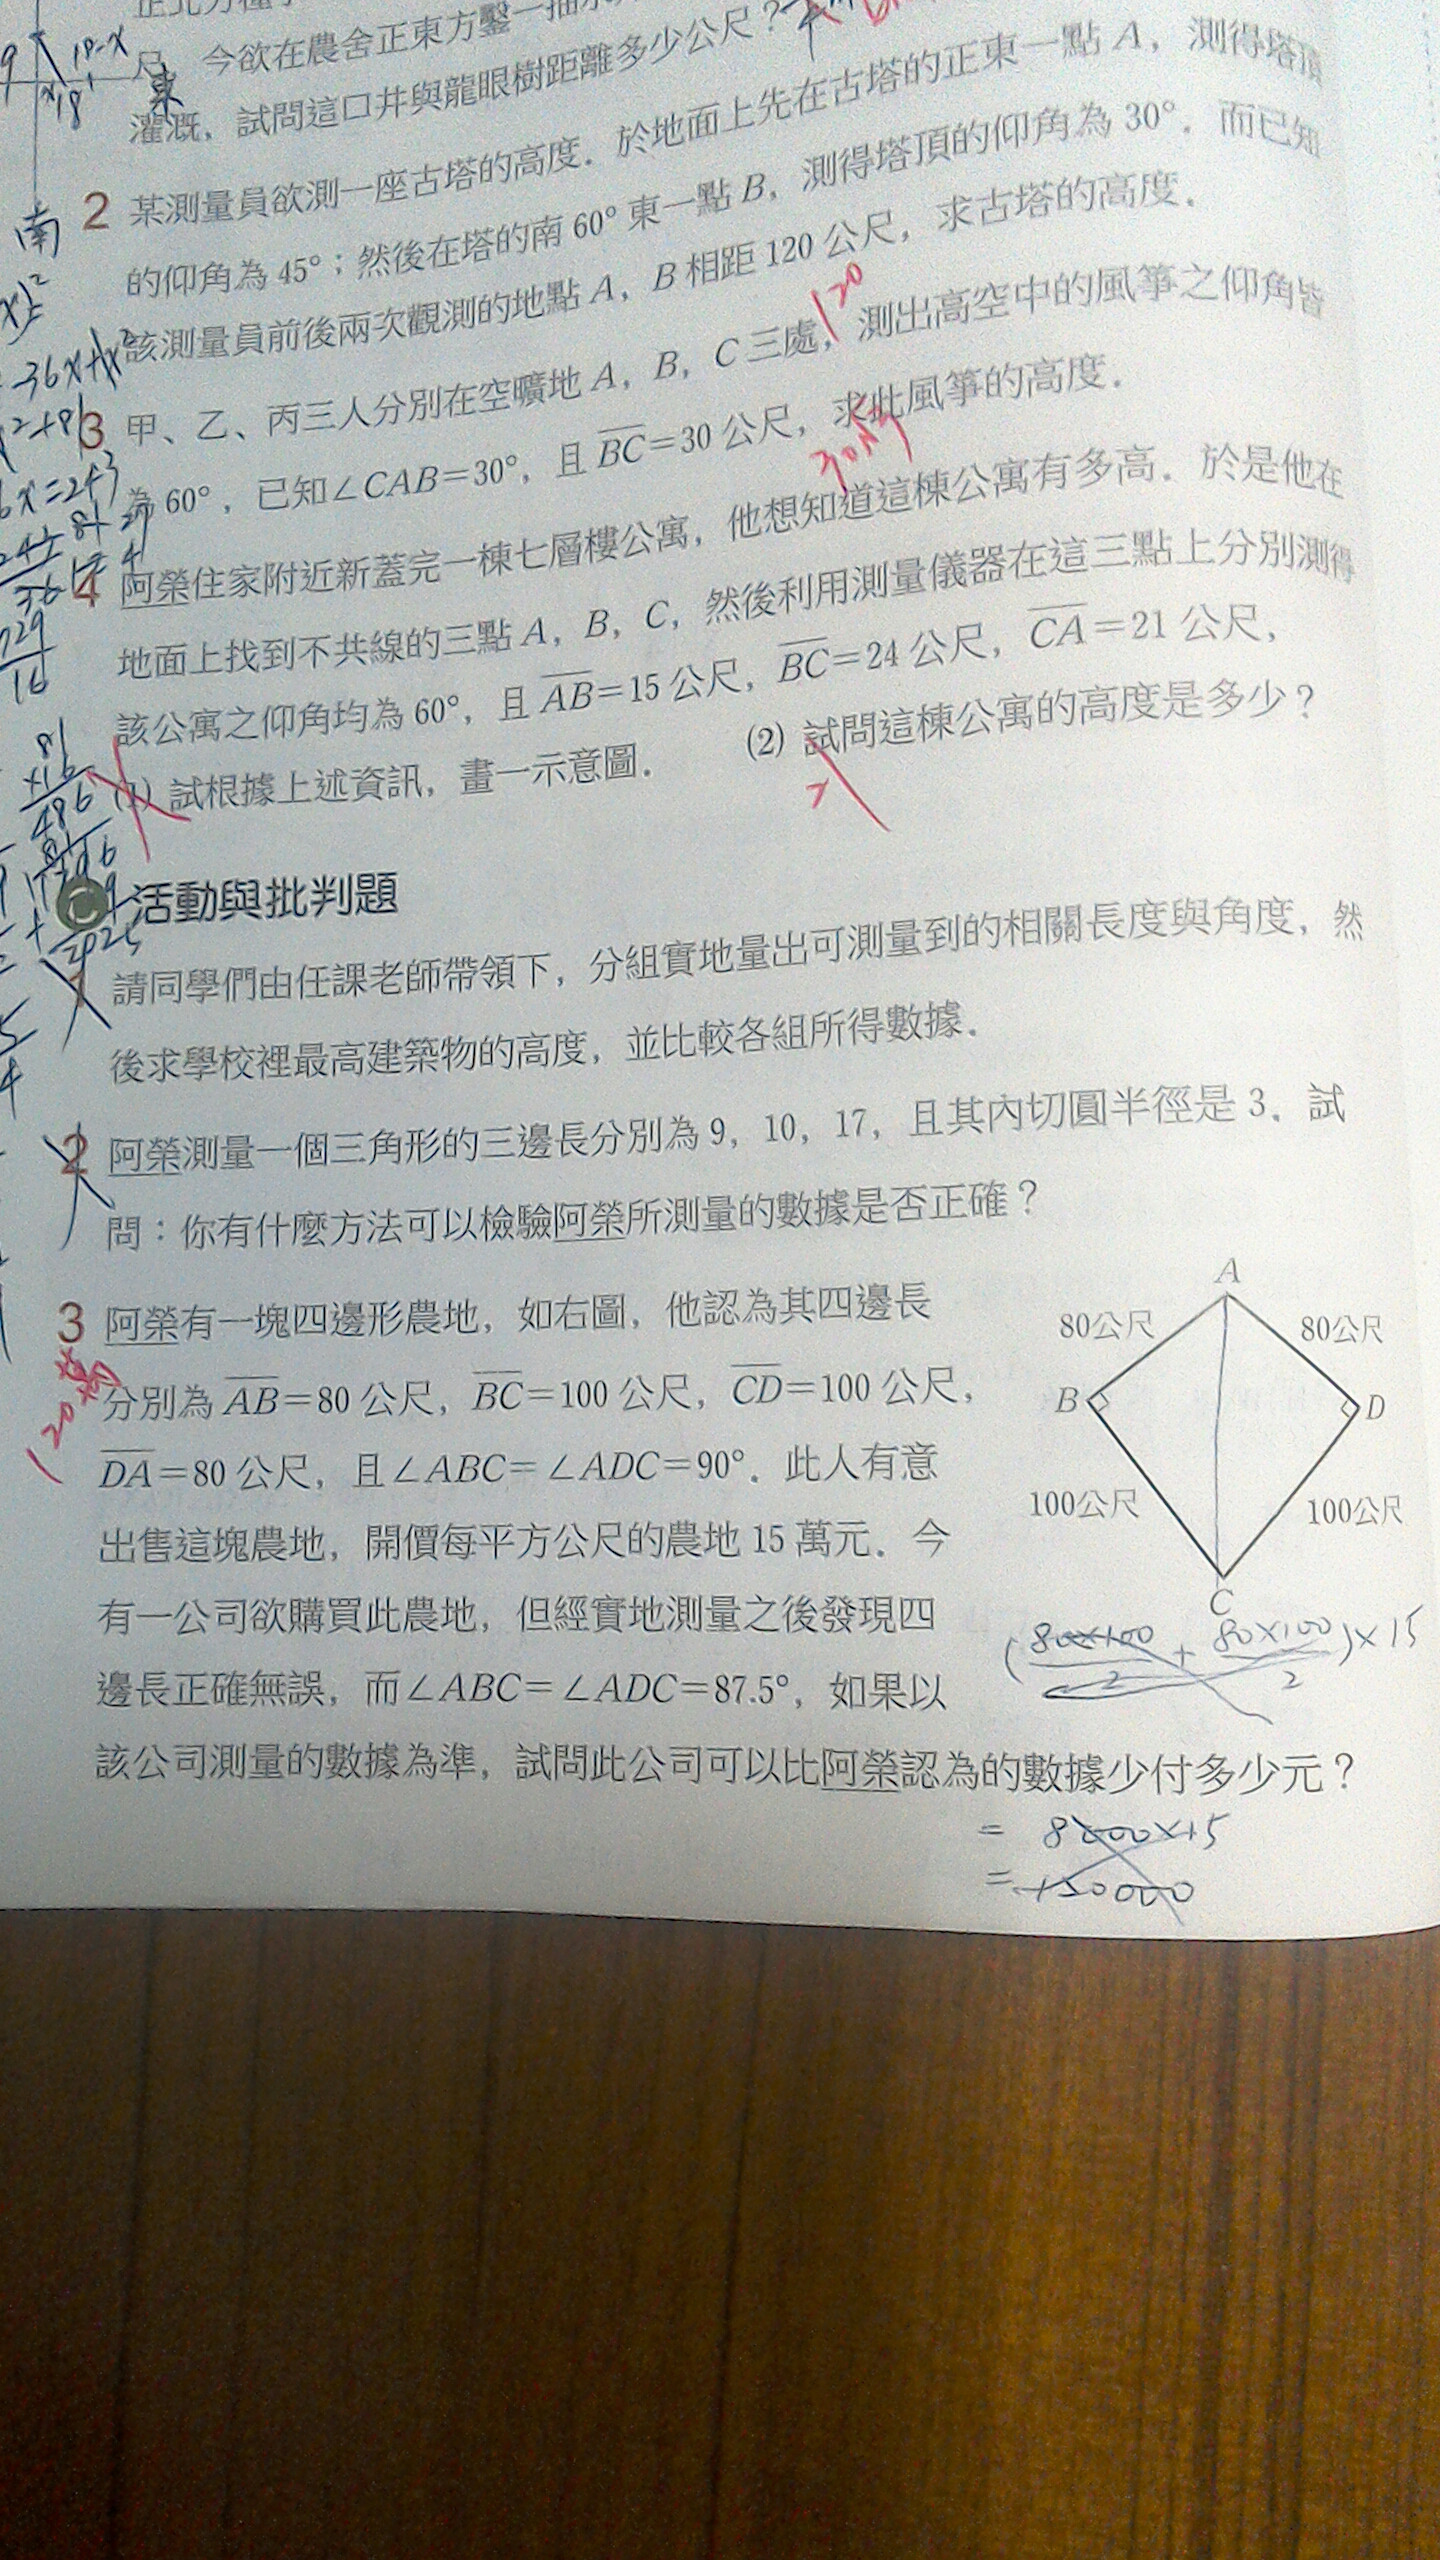 9 18-x
尺. 今欲在農舍正東方鑿一抽水
x 18 東
灌溉，試問這口井與龍眼樹距離多少公尺？
2 某測量員欲測一座古塔的高度．於地面上先在古塔的正東一點 A，測得塔頂
南
的仰角為 45°；然後在塔的南 60° 東一點 B，測得塔頂的仰角為 30°．而已知
該測量員前後兩次觀測的地點 A，B 相距 120 公尺，求古塔的高度．
120
3 甲、乙、丙三人分別在空曠地 A，B，C 三處，測出高空中的風箏之仰角皆
為 60°，已知∠CAB=30°，且 BC=30 公尺，求此風箏的高度．
30√3
4 阿榮住家附近新蓋完一棟七層樓公寓，他想知道這棟公寓有多高．於是他在
地面上找到不共線的三點 A，B，C，然後利用測量儀器在這三點上分別測得
該公寓之仰角均為 60°，且 AB=15 公尺，BC=24 公尺，CA=21 公尺，
(1) 試根據上述資訊，畫一示意圖． (2) 試問這棟公寓的高度是多少？
729
16
81
×16
486
C 活動與批判題
1 請同學們由任課老師帶領下，分組實地量出可測量到的相關長度與角度，然
後求學校裡最高建築物的高度，並比較各組所得數據．
2 阿榮測量一個三角形的三邊長分別為 9，10，17，且其內切圓半徑是 3．試
問：你有什麼方法可以檢驗阿榮所測量的數據是否正確？
3 阿榮有一塊四邊形農地，如右圖，他認為其四邊長
分別為 AB=80 公尺，BC=100 公尺，CD=100 公尺，
120萬
DA=80 公尺，且∠ABC=∠ADC=90°．此人有意
出售這塊農地，開價每平方公尺的農地 15 萬元．今
有一公司欲購買此農地，但經實地測量之後發現四
邊長正確無誤，而∠ABC=∠ADC=87.5°，如果以
該公司測量的數據為準，試問此公司可以比阿榮認為的數據少付多少元？
A
80公尺 80公尺
B D
100公尺 100公尺
C
(80×100/2 + 80×100/2)×15
= 8000×15
= 150000